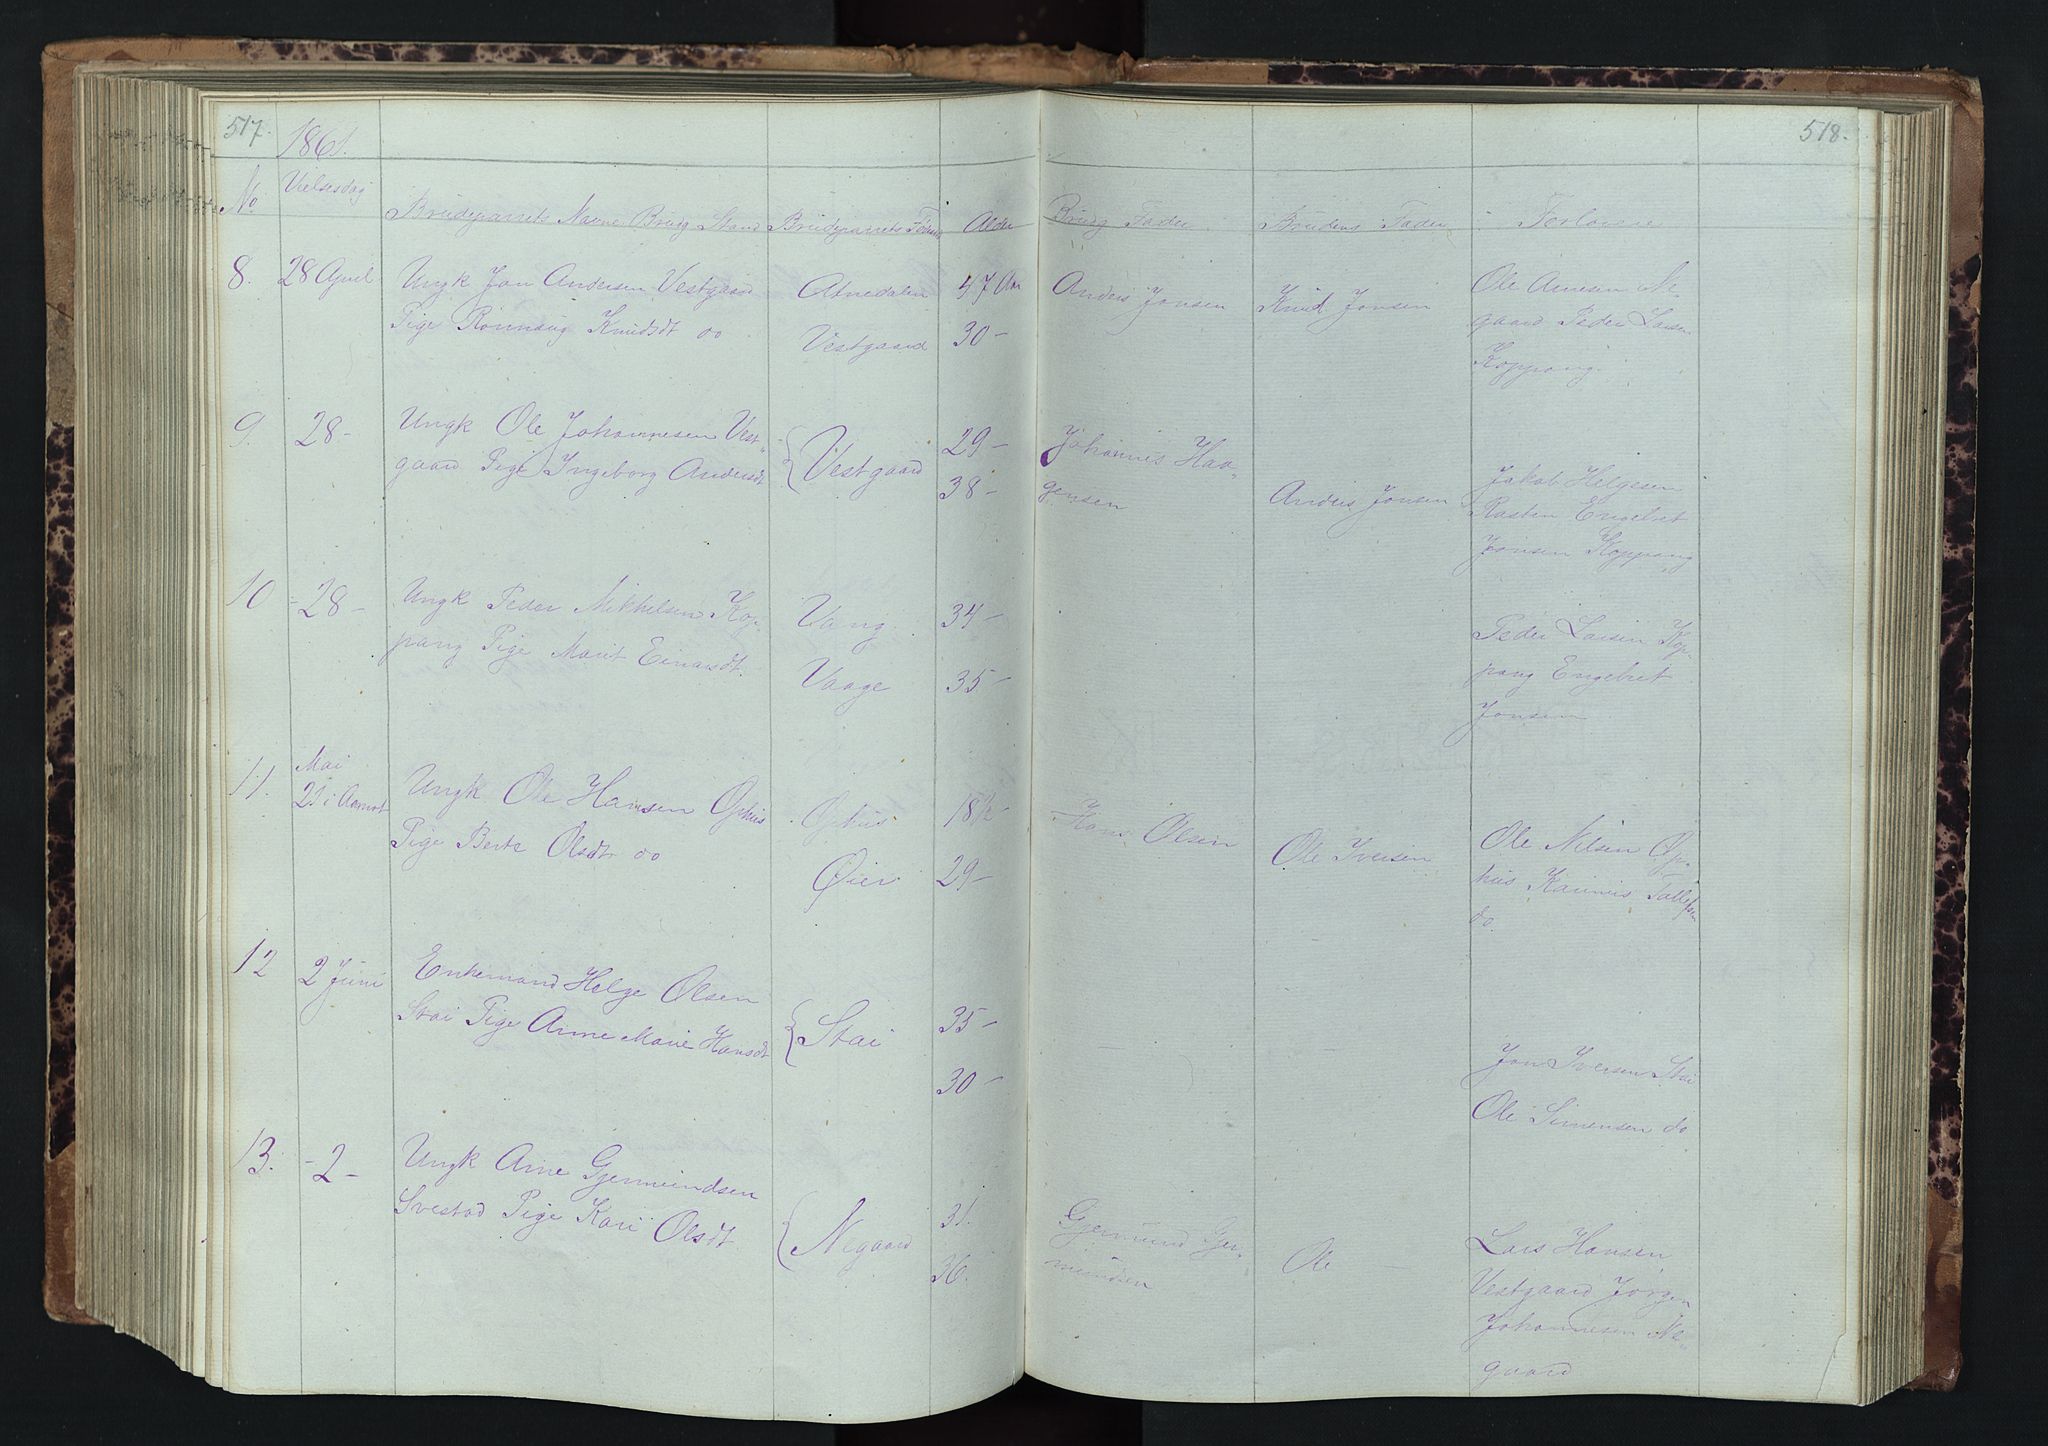 517.
518.
1861.
No.
Vielsesdag
Brudeparrets Navne Brudg Stand
Brudeparrets Fødested
Alder
Brudg Fader
Brudens Fader
Forlovere
8.
28 April
Ungk Jon Andersen Vestgaard
Pige Rønnaug Knudsdt do
Atnedalen
Vestgaard
47 Aar
30 -
Anders Jonsen
Knud Jonsen
Ole Arnesen Ne-
gaard Peder Larsen
Koppang.
9.
28 -
Ungk Ole Johannesen Vest-
gaard Pige Ingeborg Andersdt
Vestgaard
29 -
38 -
Johannes Haa-
gensen
Anders Jonsen
Jakob Helgesen
Rasten Engebret
Jonsen Koppang
10
- 28 -
Ungk Peder Mikkelsen Kop-
pang Pige Marit Einarsdt.
Vang
Vaage
34 -
35 -
Peder Larsen Kop-
pang Engebret
Jonsen
11.
Mai
21 i Aamot
Ungk Ole Hansen Ophus
Pige Berte Olsdt do
Ophus
Øier
18½ -
29 -
Hans Olsen
Ole Iversen
Ole Nilsen Op-
hus
do.
12
2 Juni
Enkemand Helge Olsen
Stai Pige Anne Marie Hansdt
Stai
35 -
30 -
Jon Iversen Stai
Ole Simensen do
13.
- 2 -
Ungk Arne Gjermundsen
Svestad Pige Kari Olsdt
Negaard
31.
36.
Gjermund Gjer-
mundsen
Ole
Lars Hansen
Vestgaard Jørgen
Johannesen Ne-
gaard